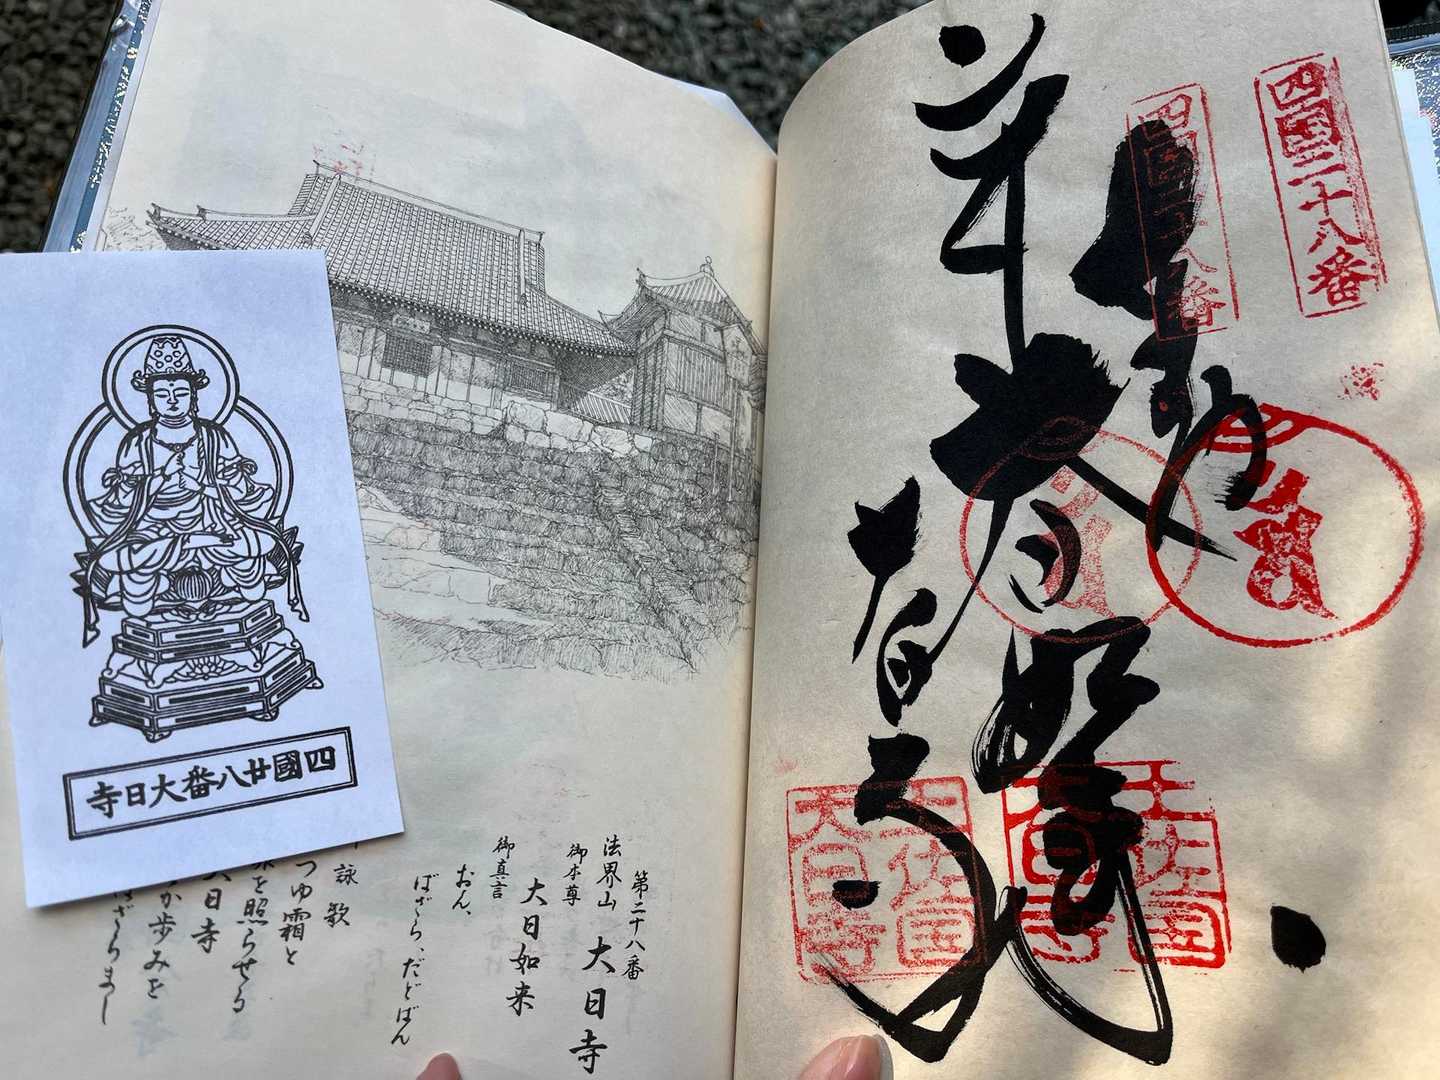 四國廿八番大日寺
第二十八番
法界山 大日寺
御本尊
大日如来
御真言
おん、
ばざら、だどばん
詠歌
つゆ霜と
を照らせる
大日寺
か歩みを
はざらまし
奉
大日如来
大日寺
四国二十八番
四国二十八番
土佐国
大日寺
土佐国
大日寺